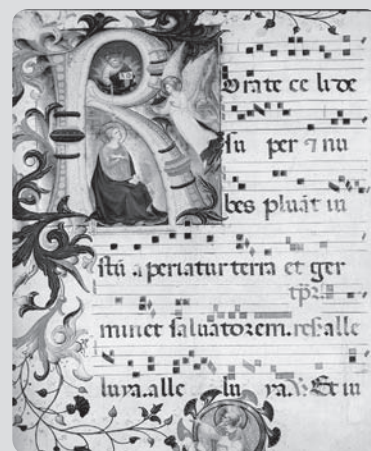 R orate ce li de
su per ⁊ nu
bes pluāt iu
stū aperiatur terra et ger
tp̄r
minet saluatorem. res alle
luya. alle lu ya. Et in